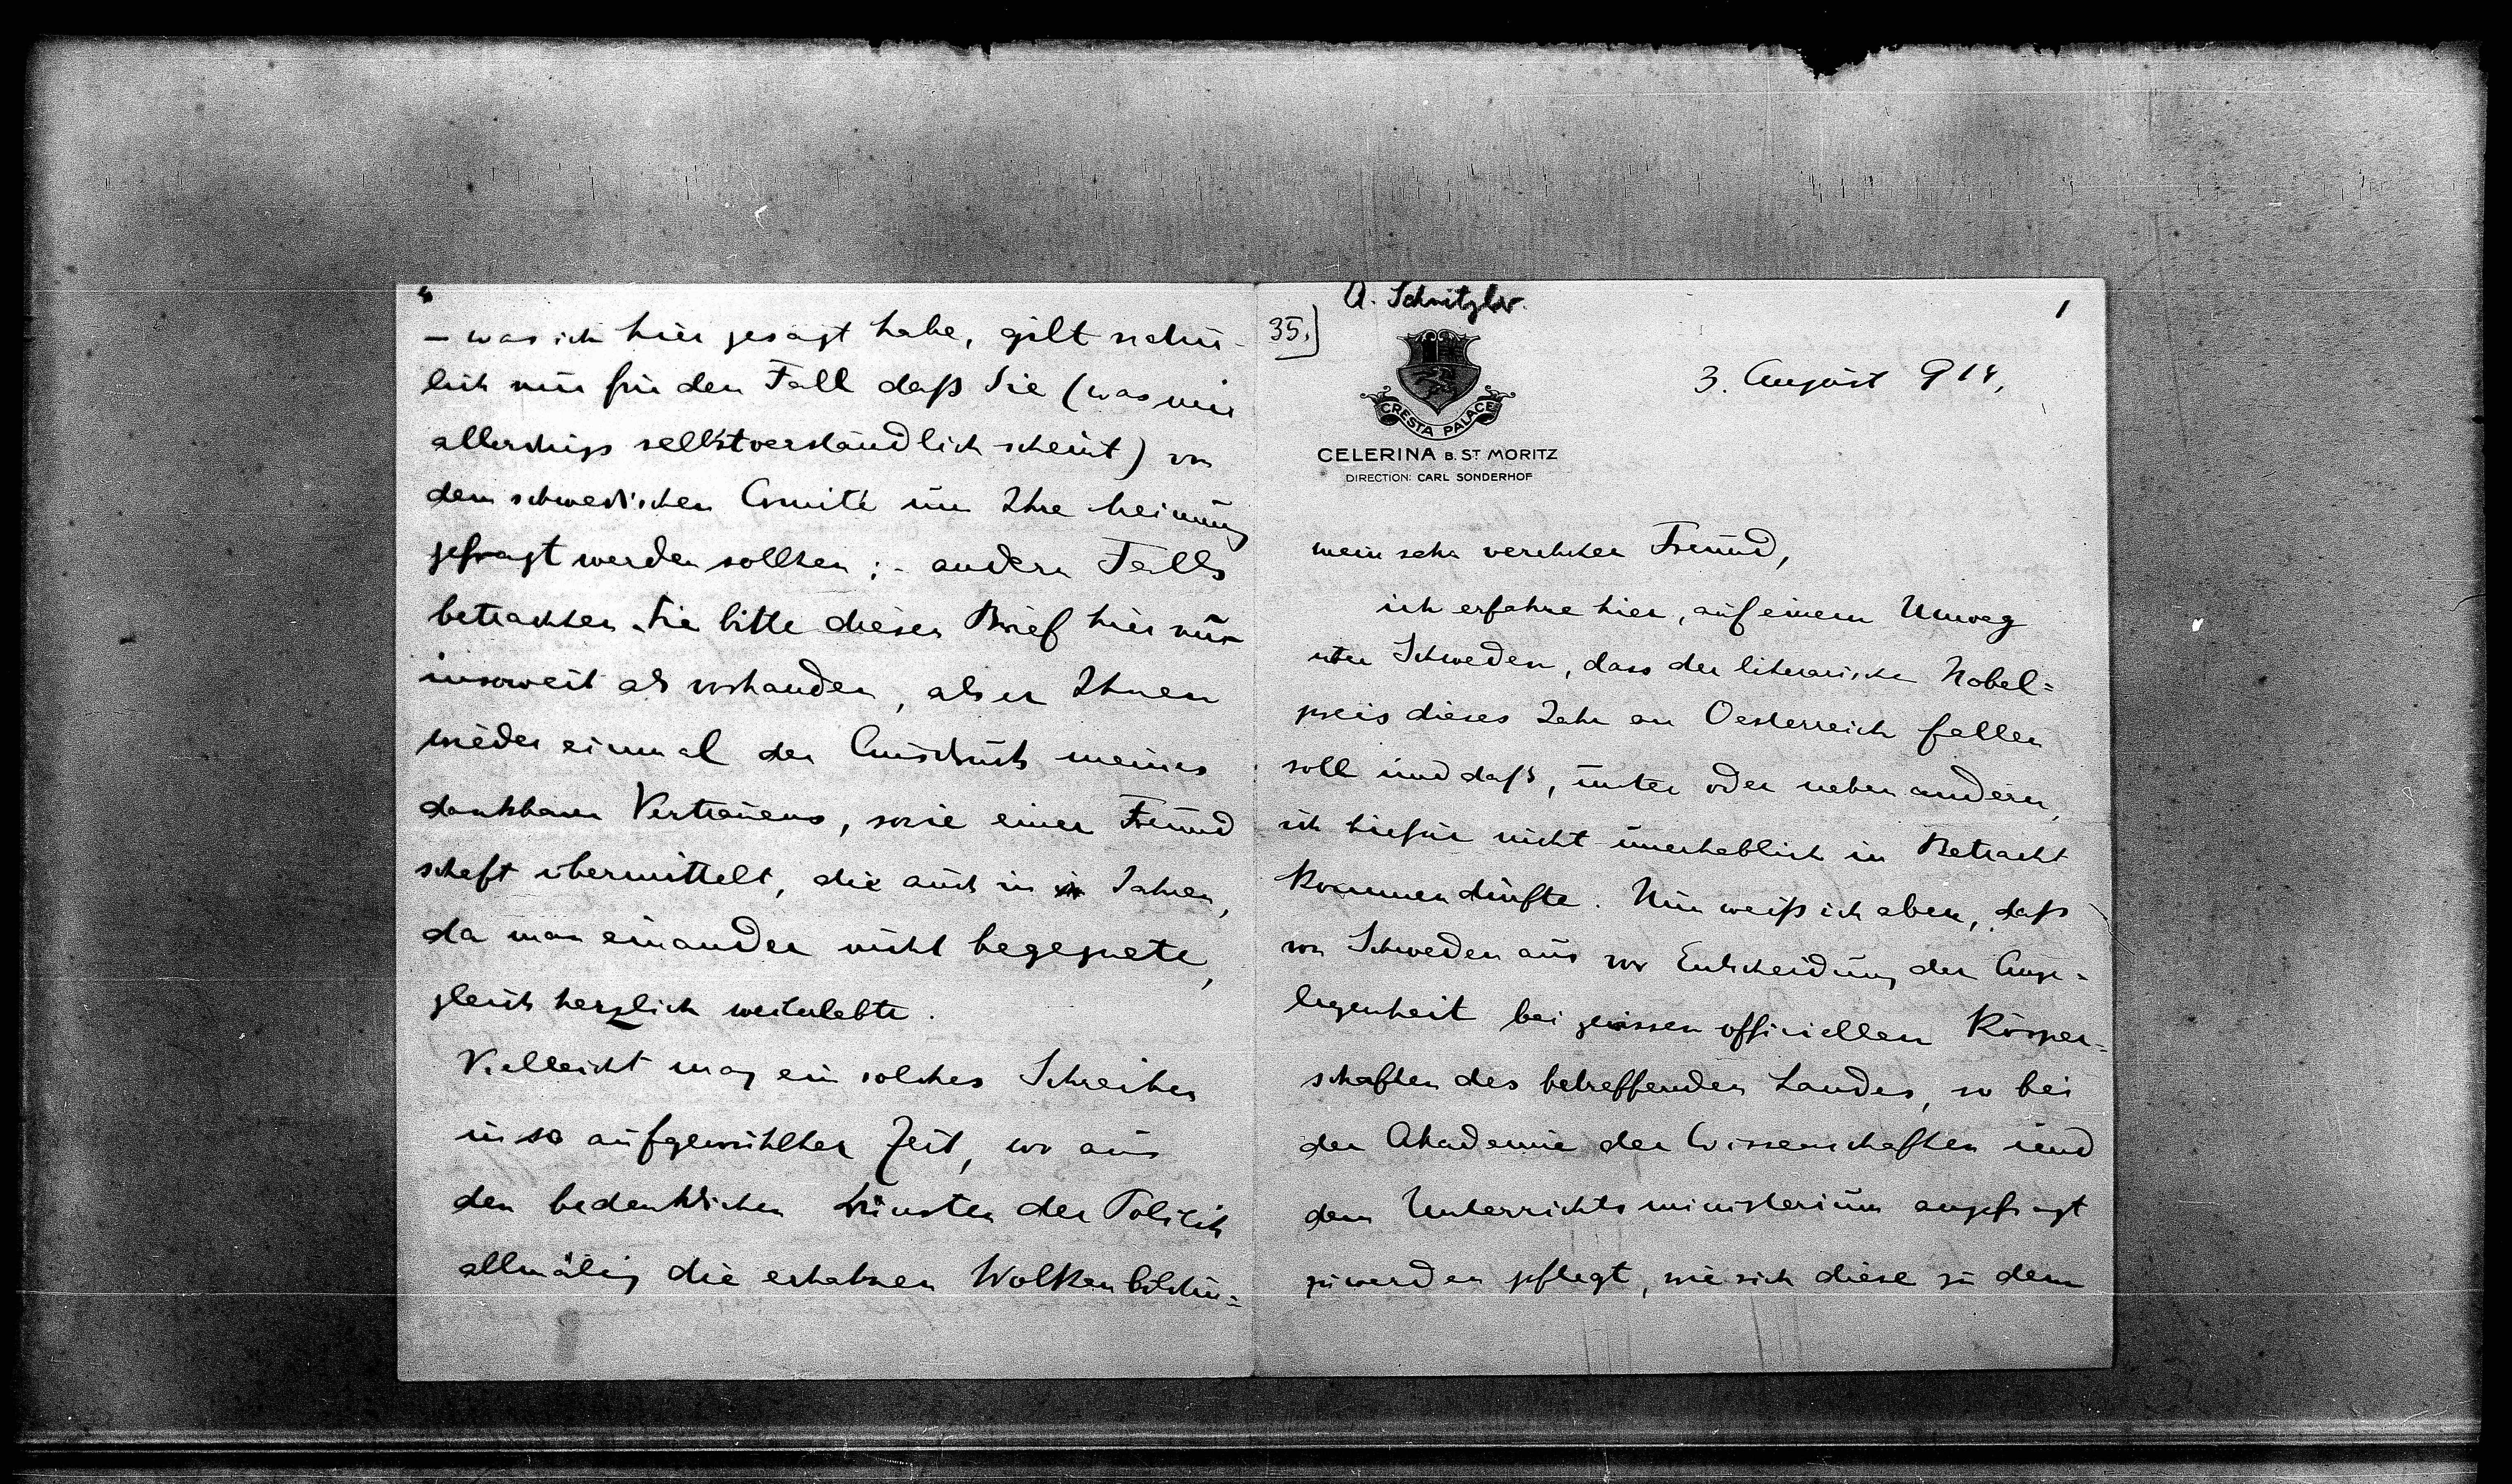 – was ich hier gesagt habe, gilt natür-
lich nur für den Fall daß Sie (was mir
allerdings selbstverständlich scheint) von
dem schwedischen Comité um Ihre Meinung
gefragt werden sollten; – andern Falls
betrachten Sie bitte diesen Brief hier nur
insoweit als vorhanden, als er Ihnen
wieder einmal den Ausdruck meines
dankbaren Vertrauens, sowie einer Freund
schaft übermittelt, die auch in Jahren,
da man einander nicht begegnete,
gleich herzlich weiterlebte.
Vielleicht mag ein solches Schreiben
in so aufgewühlter Zeit, wo aus
den bedenklichen Dünsten der Politik
allmälig die erhabnen Wolkenbildun-
A. Schnitzler.
35.]
1
CRESTA PALACE
CELERINA B. ST MORITZ
DIRECTION: CARL SONDERHOF
3. August 914,
mein sehr verehrter Freund,
ich erfahre hier, auf einem Umweg
über Schweden, dass der literarische Nobel=
preis dieses Jahr an Oesterreich fallen
soll und daß, unter oder neben andern,
ich hiefür nicht unerheblich in Betracht
kommen dürfte. Nun weiß ich aber, daß
von Schweden aus vor Entscheidung der Ange=
legenheit bei gewissen officiellen Körper=
schaften des betreffenden Landes, so bei
der Akademie der Wissenschaften und
dem Unterrichtsministerium angefragt
zu werden pflegt, wie sich diese zu dem